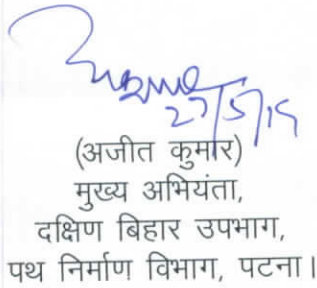 27/5/19
(अजीत कुमार)
मुख्य अभियंता,
दक्षिण बिहार उपभाग,
पथ निर्माण विभाग, पटना।